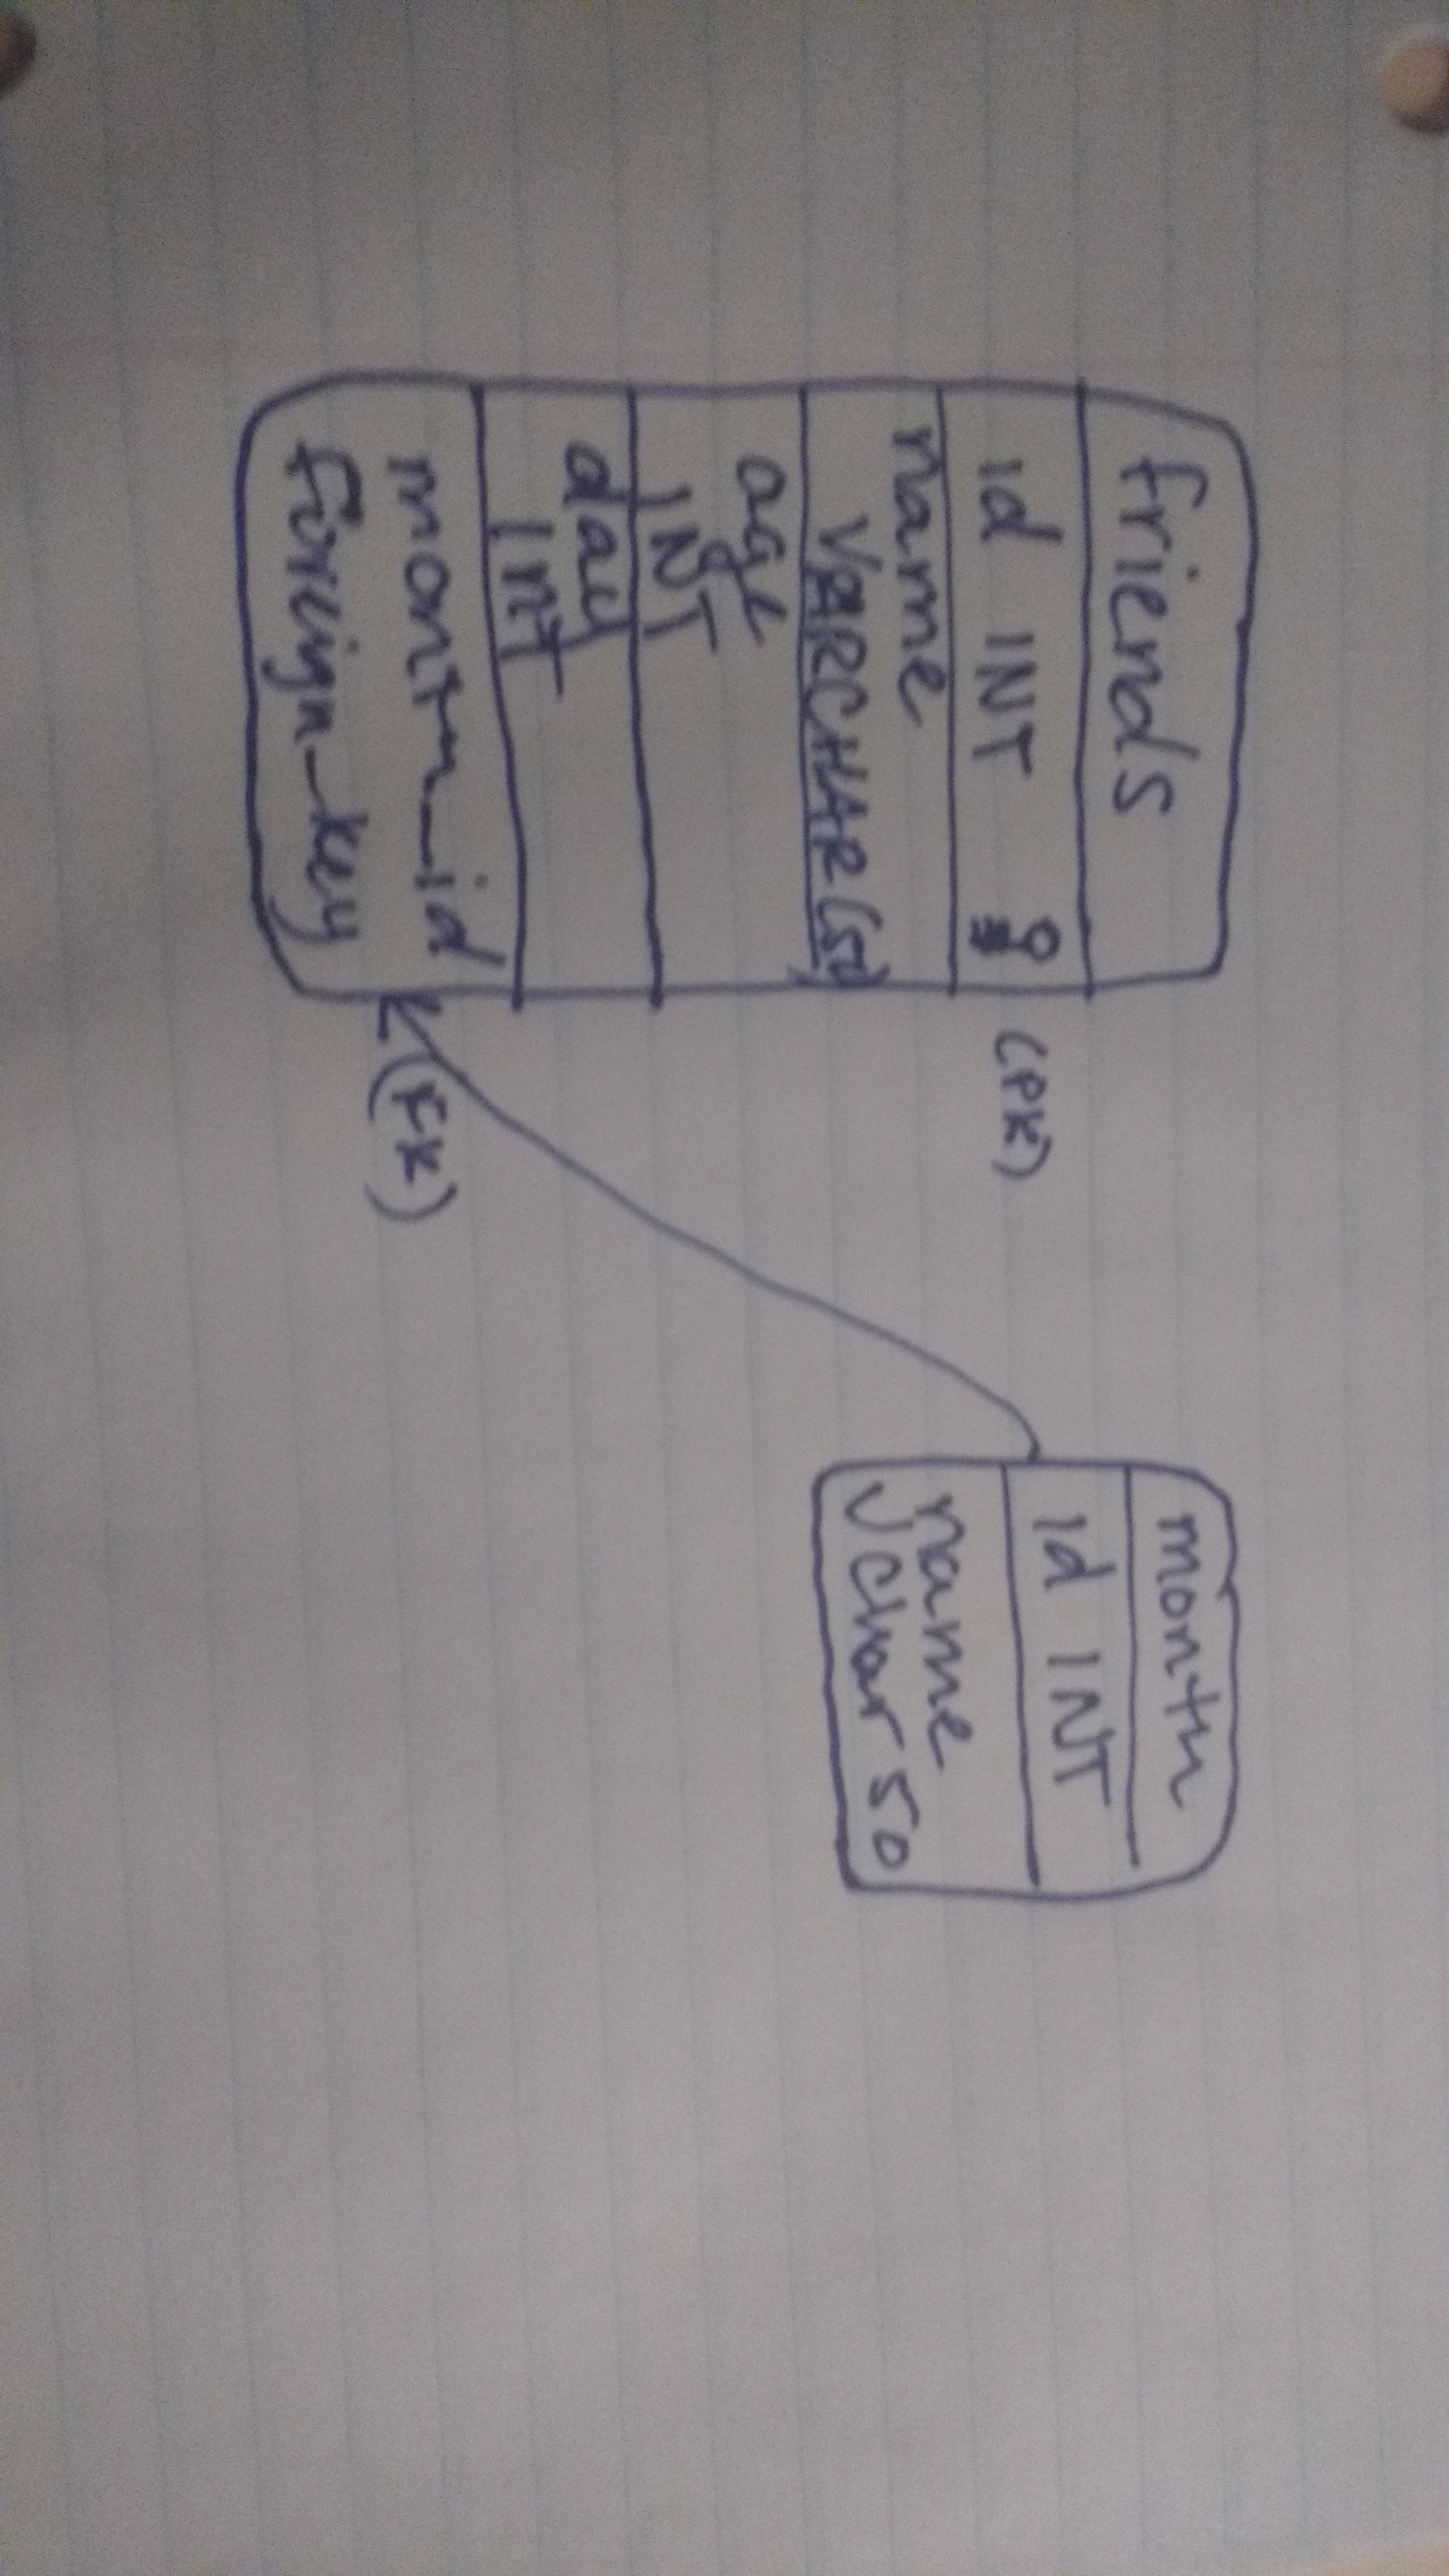 friends
id INT
(PK)
name
VARCHAR(50)
age
INT
day
INT
month_id
foreign_key
(FK)
month
id INT
name
VChar 50